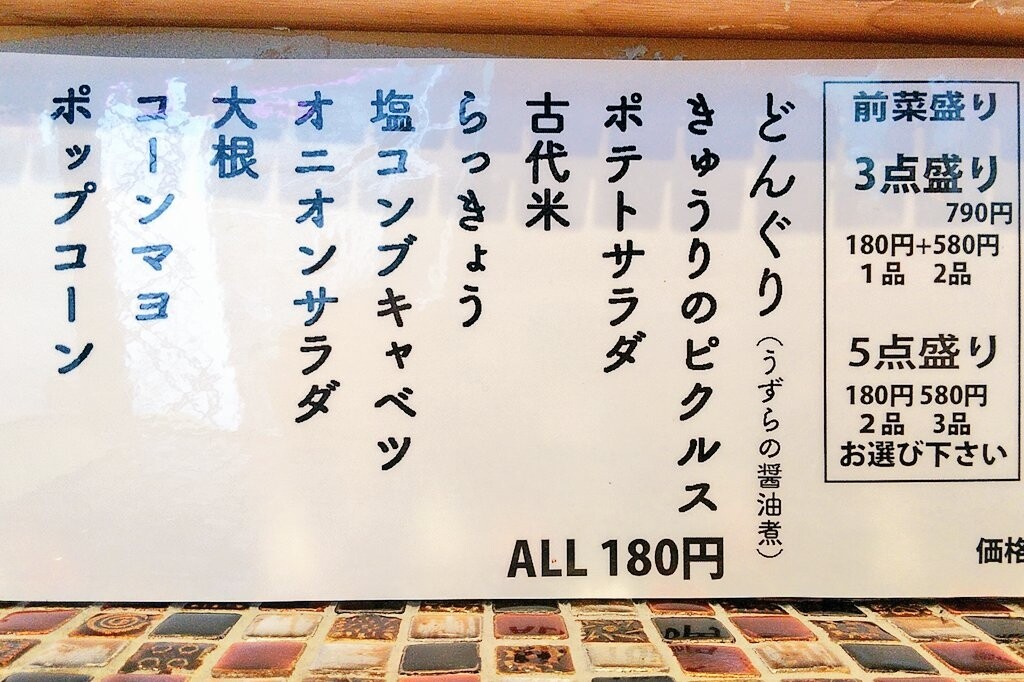 前菜盛り
3点盛り
790円
180円+580円
1品 2品
5点盛り
180円 580円
2品 3品
お選び下さい
どんぐり(うずらの醤油煮)
きゅうりのピクルス
ポテトサラダ
古代米
らっきょう
塩コンブキャベツ
オニオンサラダ
大根
コーンマヨ
ポップコーン
ALL 180円
価格